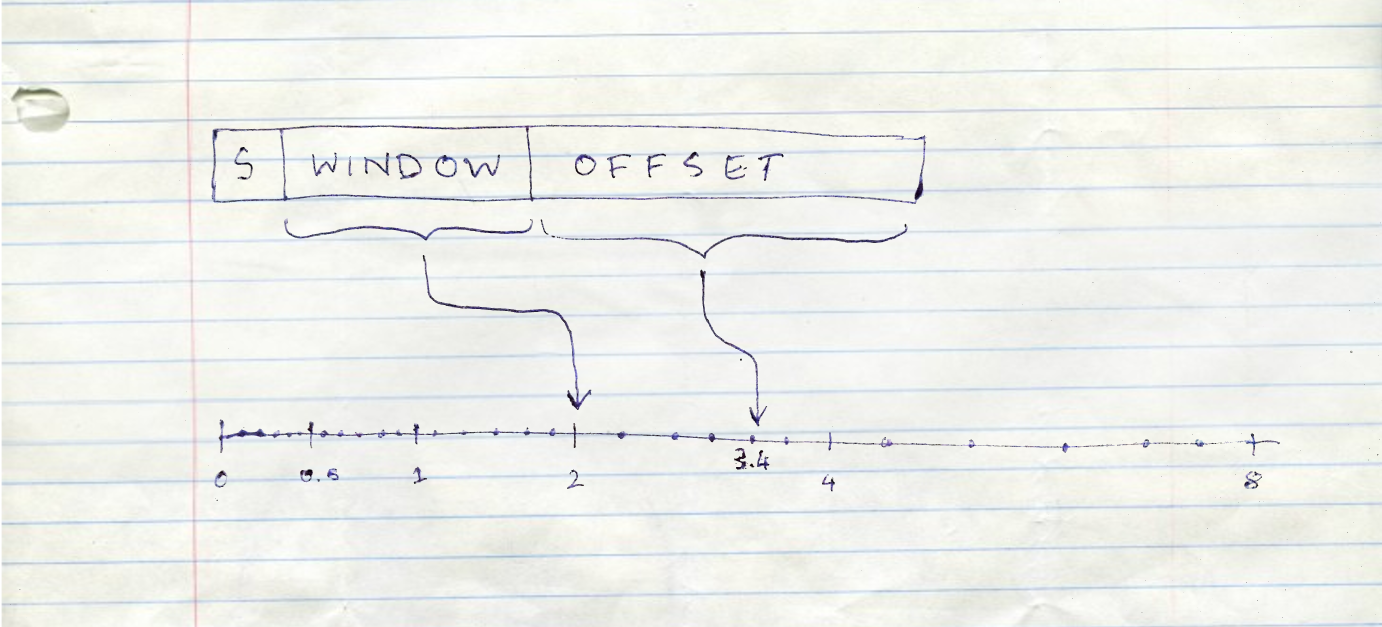 S WINDOW OFFSET
3.4
0 0.5 1 2 4 8